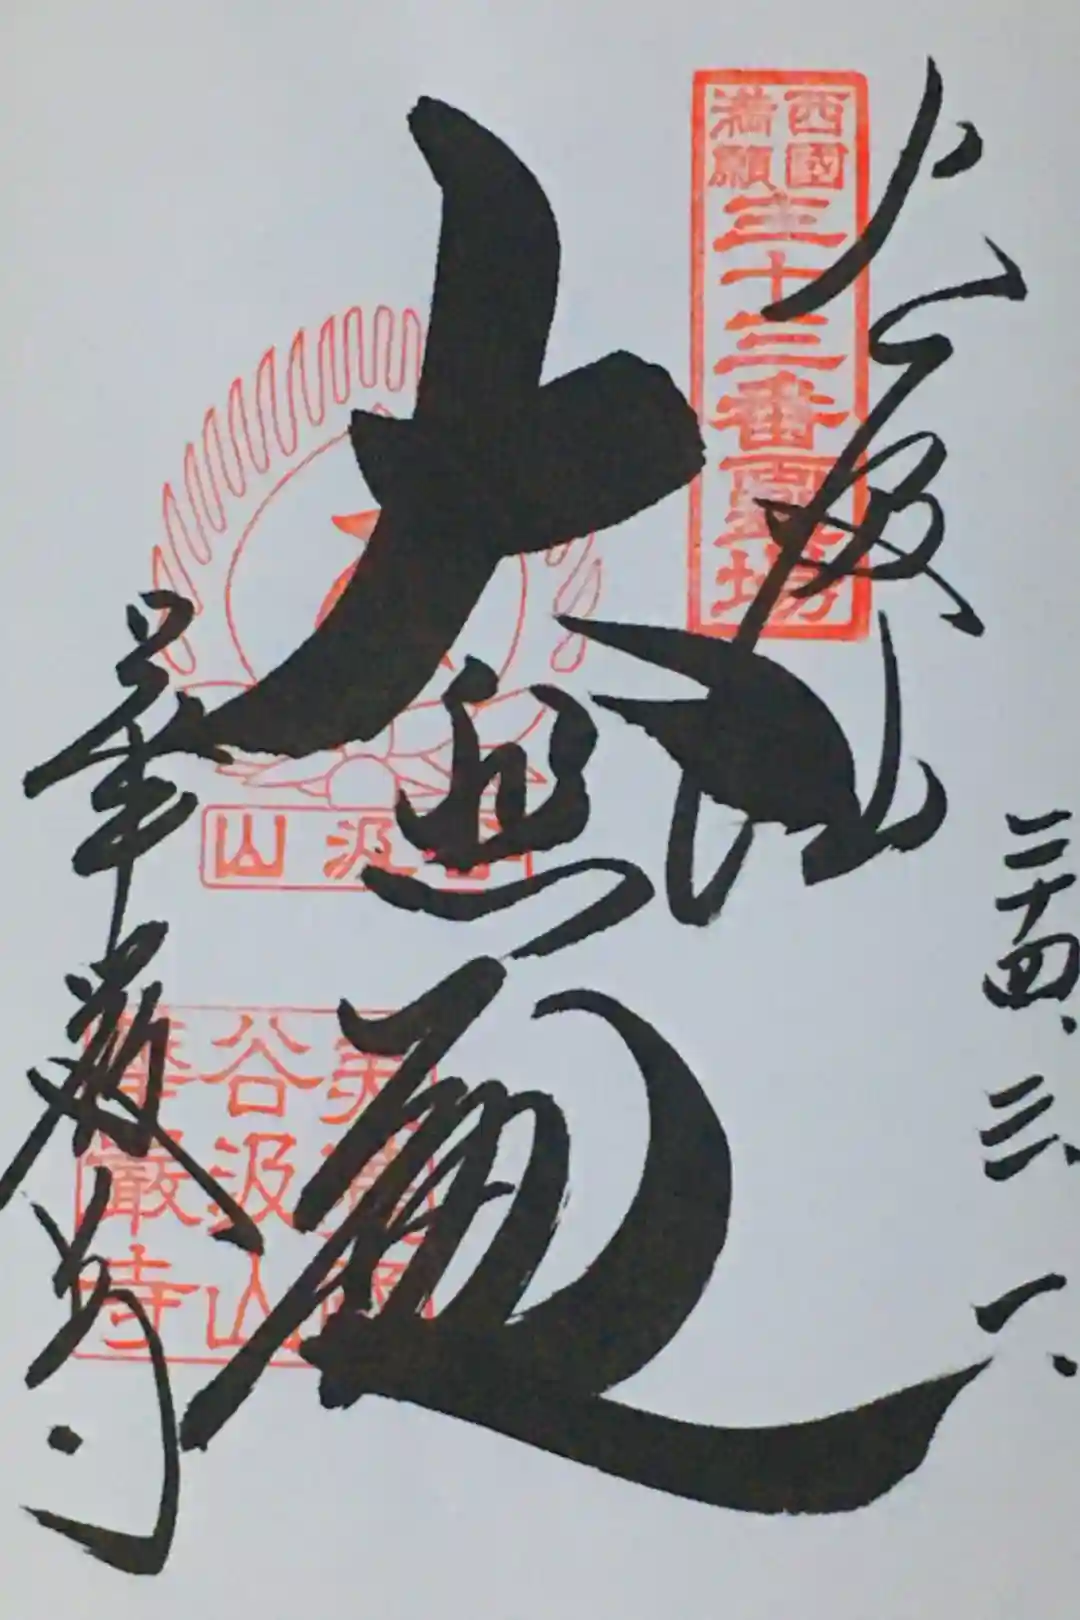 二十四、三、一、
谷汲山
西國
満願
三十三番霊場
大悲
谷汲山
美濃國
谷汲山
華嚴寺
華厳寺